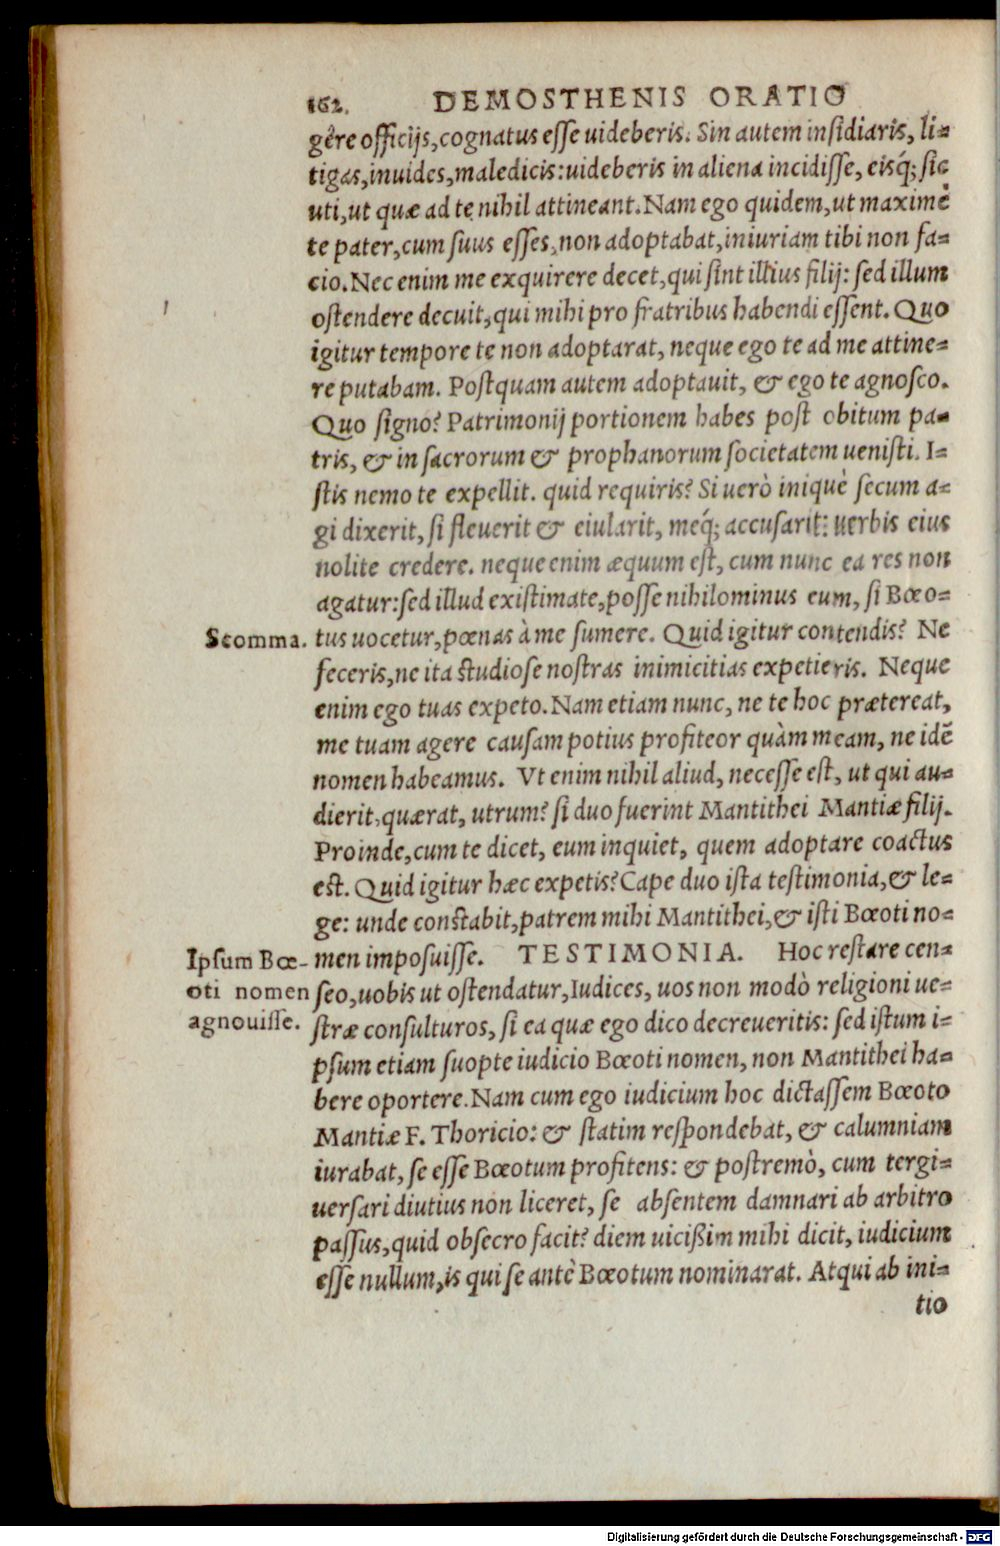 162. DEMOSTHENIS ORATIO
gere officijs, cognatus esse uideberis. Sin autem insidiaris, li-
tigas, inuides, maledicis: uideberis in aliena incidisse, eisq́; sic
uti, ut quæ ad te nihil attineant. Nam ego quidem, ut maximè
te pater, cum suus esses, non adoptabat, iniuriam tibi non fa-
cio. Nec enim me exquirere decet, qui sint illius filij: sed illum
ostendere decuit, qui mihi pro fratribus habendi essent. Quo
igitur tempore te non adoptarat, neque ego te ad me attine-
re putabam. Postquam autem adoptauit, & ego te agnosco.
Quo signo? Patrimonij portionem habes post obitum pa-
tris, & in sacrorum & prophanorum societatem uenisti. I-
stis nemo te expellit. quid requiris? Si uerò iniquè secum a-
gi dixerit, si fleuerit & eiularit, meq́; accusarit: uerbis eius
nolite credere. neque enim æquum est, cum nunc ea res non
agatur: sed illud existimate, posse nihilominus eum, si Bœo-
Scomma. tus uocetur, pœnas à me sumere. Quid igitur contendis? Ne
feceris, ne ita studiose nostras inimicitias expetieris. Neque
enim ego tuas expeto. Nam etiam nunc, ne te hoc prætereat,
me tuam agere causam potius profiteor quàm meam, ne idē
nomen habeamus. Vt enim nihil aliud, necesse est, ut qui au-
dierit, quærat, utrum? si duo fuerint Mantithei Mantiæ filij.
Proinde, cum te dicet, eum inquiet, quem adoptare coactus
est. Quid igitur hæc expetis? Cape duo ista testimonia, & le-
ge: unde constabit, patrem mihi Mantithei, & isti Bœoti no-
Ipsum Bœ- men imposuisse. TESTIMONIA. Hoc restare cen-
oti nomen seo, uobis ut ostendatur, Iudices, uos non modò religioni ue-
agnouisse. stræ consulturos, si ea quæ ego dico decreueritis: sed istum i-
psum etiam suopte iudicio Bœoti nomen, non Mantithei ha-
bere oportere. Nam cum ego iudicium hoc dictassem Bœoto
Mantiæ F. Thoricio: & statim respondebat, & calumniam
iurabat, se esse Bœotum profitens: & postremò, cum tergi-
uersari diutius non liceret, se absentem damnari ab arbitro
passus, quid obsecro facit? diem uicißim mihi dicit, iudicium
esse nullum, is qui se antè Bœotum nominarat. Atqui ab ini-
tio
Digitalisierung gefördert durch die Deutsche Forschungsgemeinschaft - DFG